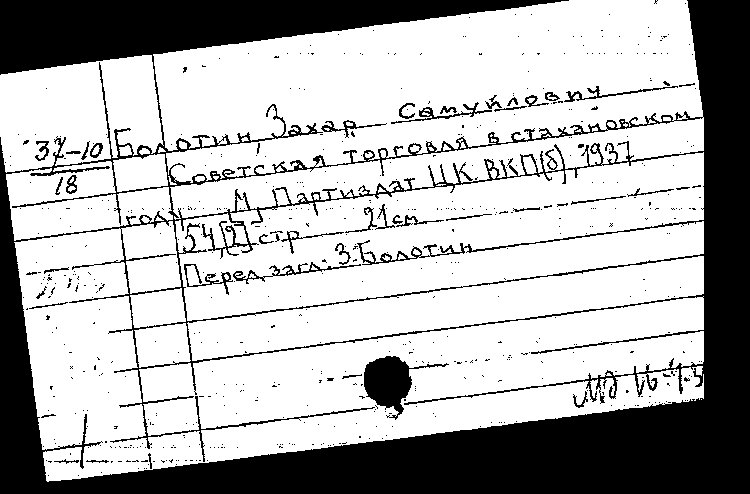 37-10
18
Болотин, Захар Самуйлович
Советская торговля в стахановском
году. [М.], Партиздат ЦК ВКП(б), 1937
54,[2] стр. 21 см
Перед загл.: З. Болотин